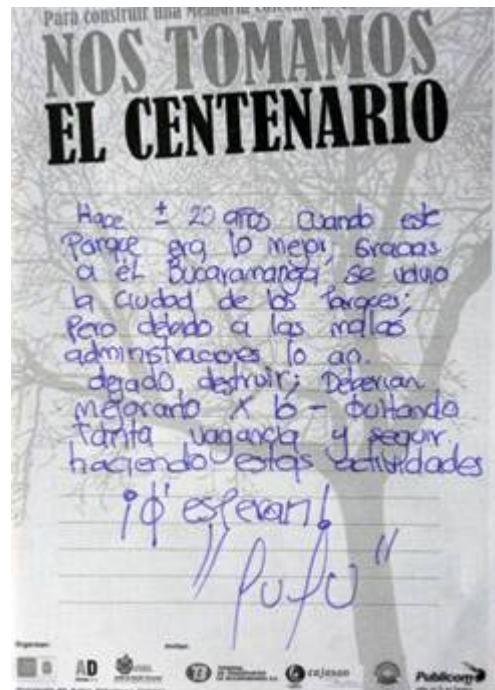 Para construir una Memoria
NOS TOMAMOS
EL CENTENARIO
Hace ± 20 años Cuando este
Parque era lo mejor, Gracias
a él Bucaramanga, se volvio
la ciudad de los Parques;
Pero debido a las mallas
administraciones lo an.
dejado, destruir; Deberian
mejorarlo X lo - Quitando
Tanta vagancia y seguir
haciendo estas actividades
¡Q' esperan!
"Pufu"
Organizan:
Invitan:
AD
cajasan
Publicom